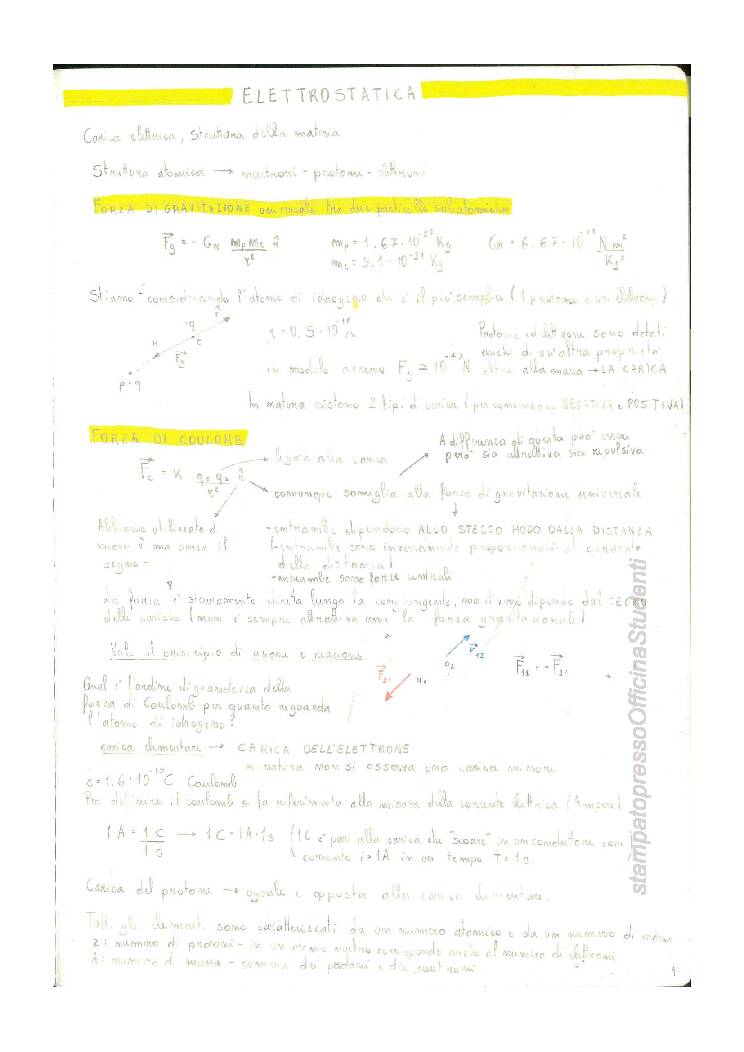 ELETTROSTATICA
Carica elettrica, struttura della materia
Struttura atomica → neutroni - protoni - elettroni
FORZA DI GRAVITAZIONE universale tra due particelle subatomiche
F⃗g = - GN mp me / r² r̂ mp = 1.67·10⁻²⁷ Kg GN = 6.67·10⁻¹¹ N m² / Kg²
me = 9.1·10⁻³¹ Kg
Stiamo considerando l'atomo di idrogeno che è il più semplice (1 protone e un elettrone)
r = 0,5·10⁻¹⁰ m
Protone ed elettrone sono dotati
anche di un'altra proprietà
in modulo avremo Fg ≃ 10⁻⁴⁷ N oltre alla massa → LA CARICA
-q
e
F⃗g
p=+q
In natura esistono 2 tipi di carica (per convenzione NEGATIVA e POSITIVA)
FORZA DI COULOMB
A differenza di questa può essere
però sia attrattiva sia repulsiva
legata alla carica
F⃗c = K q1 q2 / r² r̂
comunque somiglia alla forza di gravitazione universale
Abbiamo utilizzato di
nuovo r̂ ma senza il
segno -
- entrambe dipendono ALLO STESSO MODO DALLA DISTANZA
(- entrambe sono inversamente proporzionali al quadrato
della distanza)
- entrambe sono forze centrali
La forza è sicuramente diretta lungo la congiungente, ma il verso dipende dal SEGNO
delle cariche (non è sempre attrattiva come la forza gravitazionale)
Vale il principio di azione e reazione
F⃗21 q1 q2 F⃗12 F⃗12 = - F⃗21
Qual è l'ordine di grandezza della
forza di Coulomb per quanto riguarda
l'atomo di idrogeno?
carica elementare → CARICA DELL'ELETTRONE
in natura non si osserva una carica minore
e = 1.6·10⁻¹⁹ C Coulomb
Per definire il coulomb si fa riferimento alla misura della corrente elettrica (Ampere)
1 A = 1 C / 1 s → 1C = 1A·1s (1C è pari alla carica che "scorre" in un conduttore con
corrente i = 1A in un tempo T = 1s.)
Carica del protone → uguale e opposta alla carica elementare.
Tutti gli elementi sono caratterizzati da un numero atomico e da un numero di massa
Z: numero di protoni - in un atomo neutro corrisponde anche al numero di elettroni
A: numero di massa - somma dei protoni e dei neutroni
1
stampatopressoOfficinaStudenti